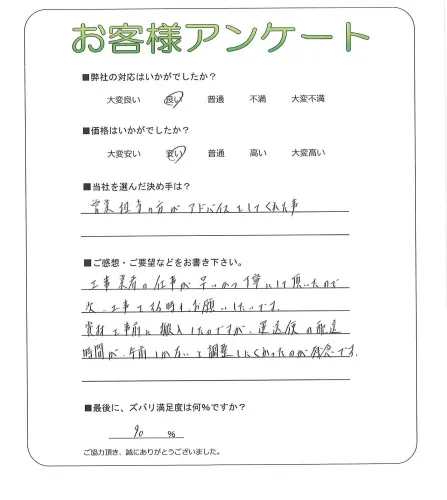 お客様アンケート
■弊社の対応はいかがでしたか？
大変良い 良い 普通 不満 大変不満
■価格はいかがでしたか？
大変安い 安い 普通 高い 大変高い
■当社を選んだ決め手は？
営業担当の方がアドバイスをしてくれた事
■ご感想・ご要望などをお書き下さい。
工事業者の仕事が早いかつ丁寧にして頂いたので
次、工事する時もお願いしたいです。
資材を事前に搬入したのですが、運送便の配送
時間が、午前しかないと調整しにくかったのが残念です。
■最後に、ズバリ満足度は何％ですか？
90 ％
ご協力頂き、誠にありがとうございました。